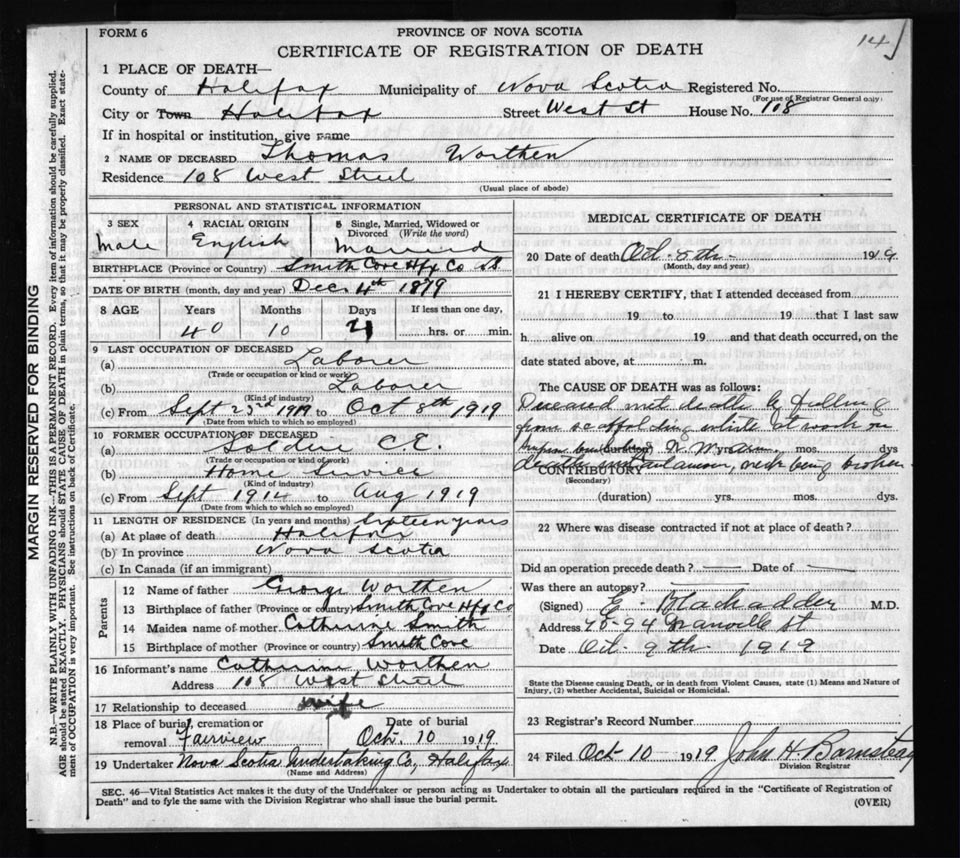 FORM 6
PROVINCE OF NOVA SCOTIA
CERTIFICATE OF REGISTRATION OF DEATH
14
1 PLACE OF DEATH—
County of Halifax Municipality of Nova Scotia Registered No.
(For use of Registrar General only)
City or Town Halifax Street West St House No. 108
If in hospital or institution, give name
2 NAME OF DECEASED Thomas Worthen
Residence 108 West Street
(Usual place of abode)
PERSONAL AND STATISTICAL INFORMATION
3 SEX 4 RACIAL ORIGIN 5 Single, Married, Widowed or Divorced (Write the word)
Male English Married
BIRTHPLACE (Province or Country) Smith Cove Hfx Co
DATE OF BIRTH (month, day and year) Dec 4th 1879
8 AGE Years Months Days If less than one day,
40 10 4 hrs. or min.
9 LAST OCCUPATION OF DECEASED
(a) Laborer
(Trade or occupation or kind of work)
(b) Laborer
(Kind of industry)
(c) From Sept 23rd 1919 to Oct 8th 1919
(Date from which to which so employed)
10 FORMER OCCUPATION OF DECEASED
(a) Soldier C.E.
(Trade or occupation or kind of work)
(b) Home Service
(Kind of industry)
(c) From Sept 1914 to Aug 1919
(Date from which to which so employed)
11 LENGTH OF RESIDENCE (In years and months) years
(a) At place of death Halifax
(b) In province Nova Scotia
(c) In Canada (if an immigrant)
Parents
12 Name of father George Worthen
13 Birthplace of father (Province or country) Smith Cove Hfx Co
14 Maiden name of mother Catherine Smith
15 Birthplace of mother (Province or country) Smith Cove
16 Informant's name Catherine Worthen
Address 108 West Street
17 Relationship to deceased wife
18 Place of burial, cremation or removal Fairview Date of burial Oct. 10 1919
19 Undertaker Nova Scotia Undertaking Co, Halifax
(Name and Address)
MEDICAL CERTIFICATE OF DEATH
20 Date of death Oct. 8th 1919
(Month, day and year)
21 I HEREBY CERTIFY, that I attended deceased from
19 to 19 that I last saw
h alive on 19 and that death occurred, on the
date stated above, at m.
The CAUSE OF DEATH was as follows:
Deceased met death by falling
from scaffolding while at work on
(duration) yrs. mos. dys.
CONTRIBUTORY being broken
(Secondary)
(duration) yrs. mos. dys.
22 Where was disease contracted if not at place of death?
Did an operation precede death? — Date of —
Was there an autopsy? —
(Signed) E. Blackadder M.D.
Address 70-94 Granville St
Date Oct. 9th 1919
State the Disease causing Death, or in death from Violent Causes, state (1) Means and Nature of
Injury, (2) whether Accidental, Suicidal or Homicidal.
23 Registrar's Record Number
24 Filed Oct 10 1919 John H. Barnstead
Division Registrar
SEC. 46—Vital Statistics Act makes it the duty of the Undertaker or person acting as Undertaker to obtain all the particulars required in the "Certificate of Registration of
Death" and to fyle the same with the Division Registrar who shall issue the burial permit.
(OVER)
MARGIN RESERVED FOR BINDING
N.B.—WRITE PLAINLY WITH UNFADING INK—THIS IS A PERMANENT RECORD. Every item of information should be carefully supplied.
AGE should be stated EXACTLY. PHYSICIANS should STATE CAUSE OF DEATH in plain terms, so that it may be properly classified. Exact state-
ment of OCCUPATION is very important. See instructions on back of Certificate.